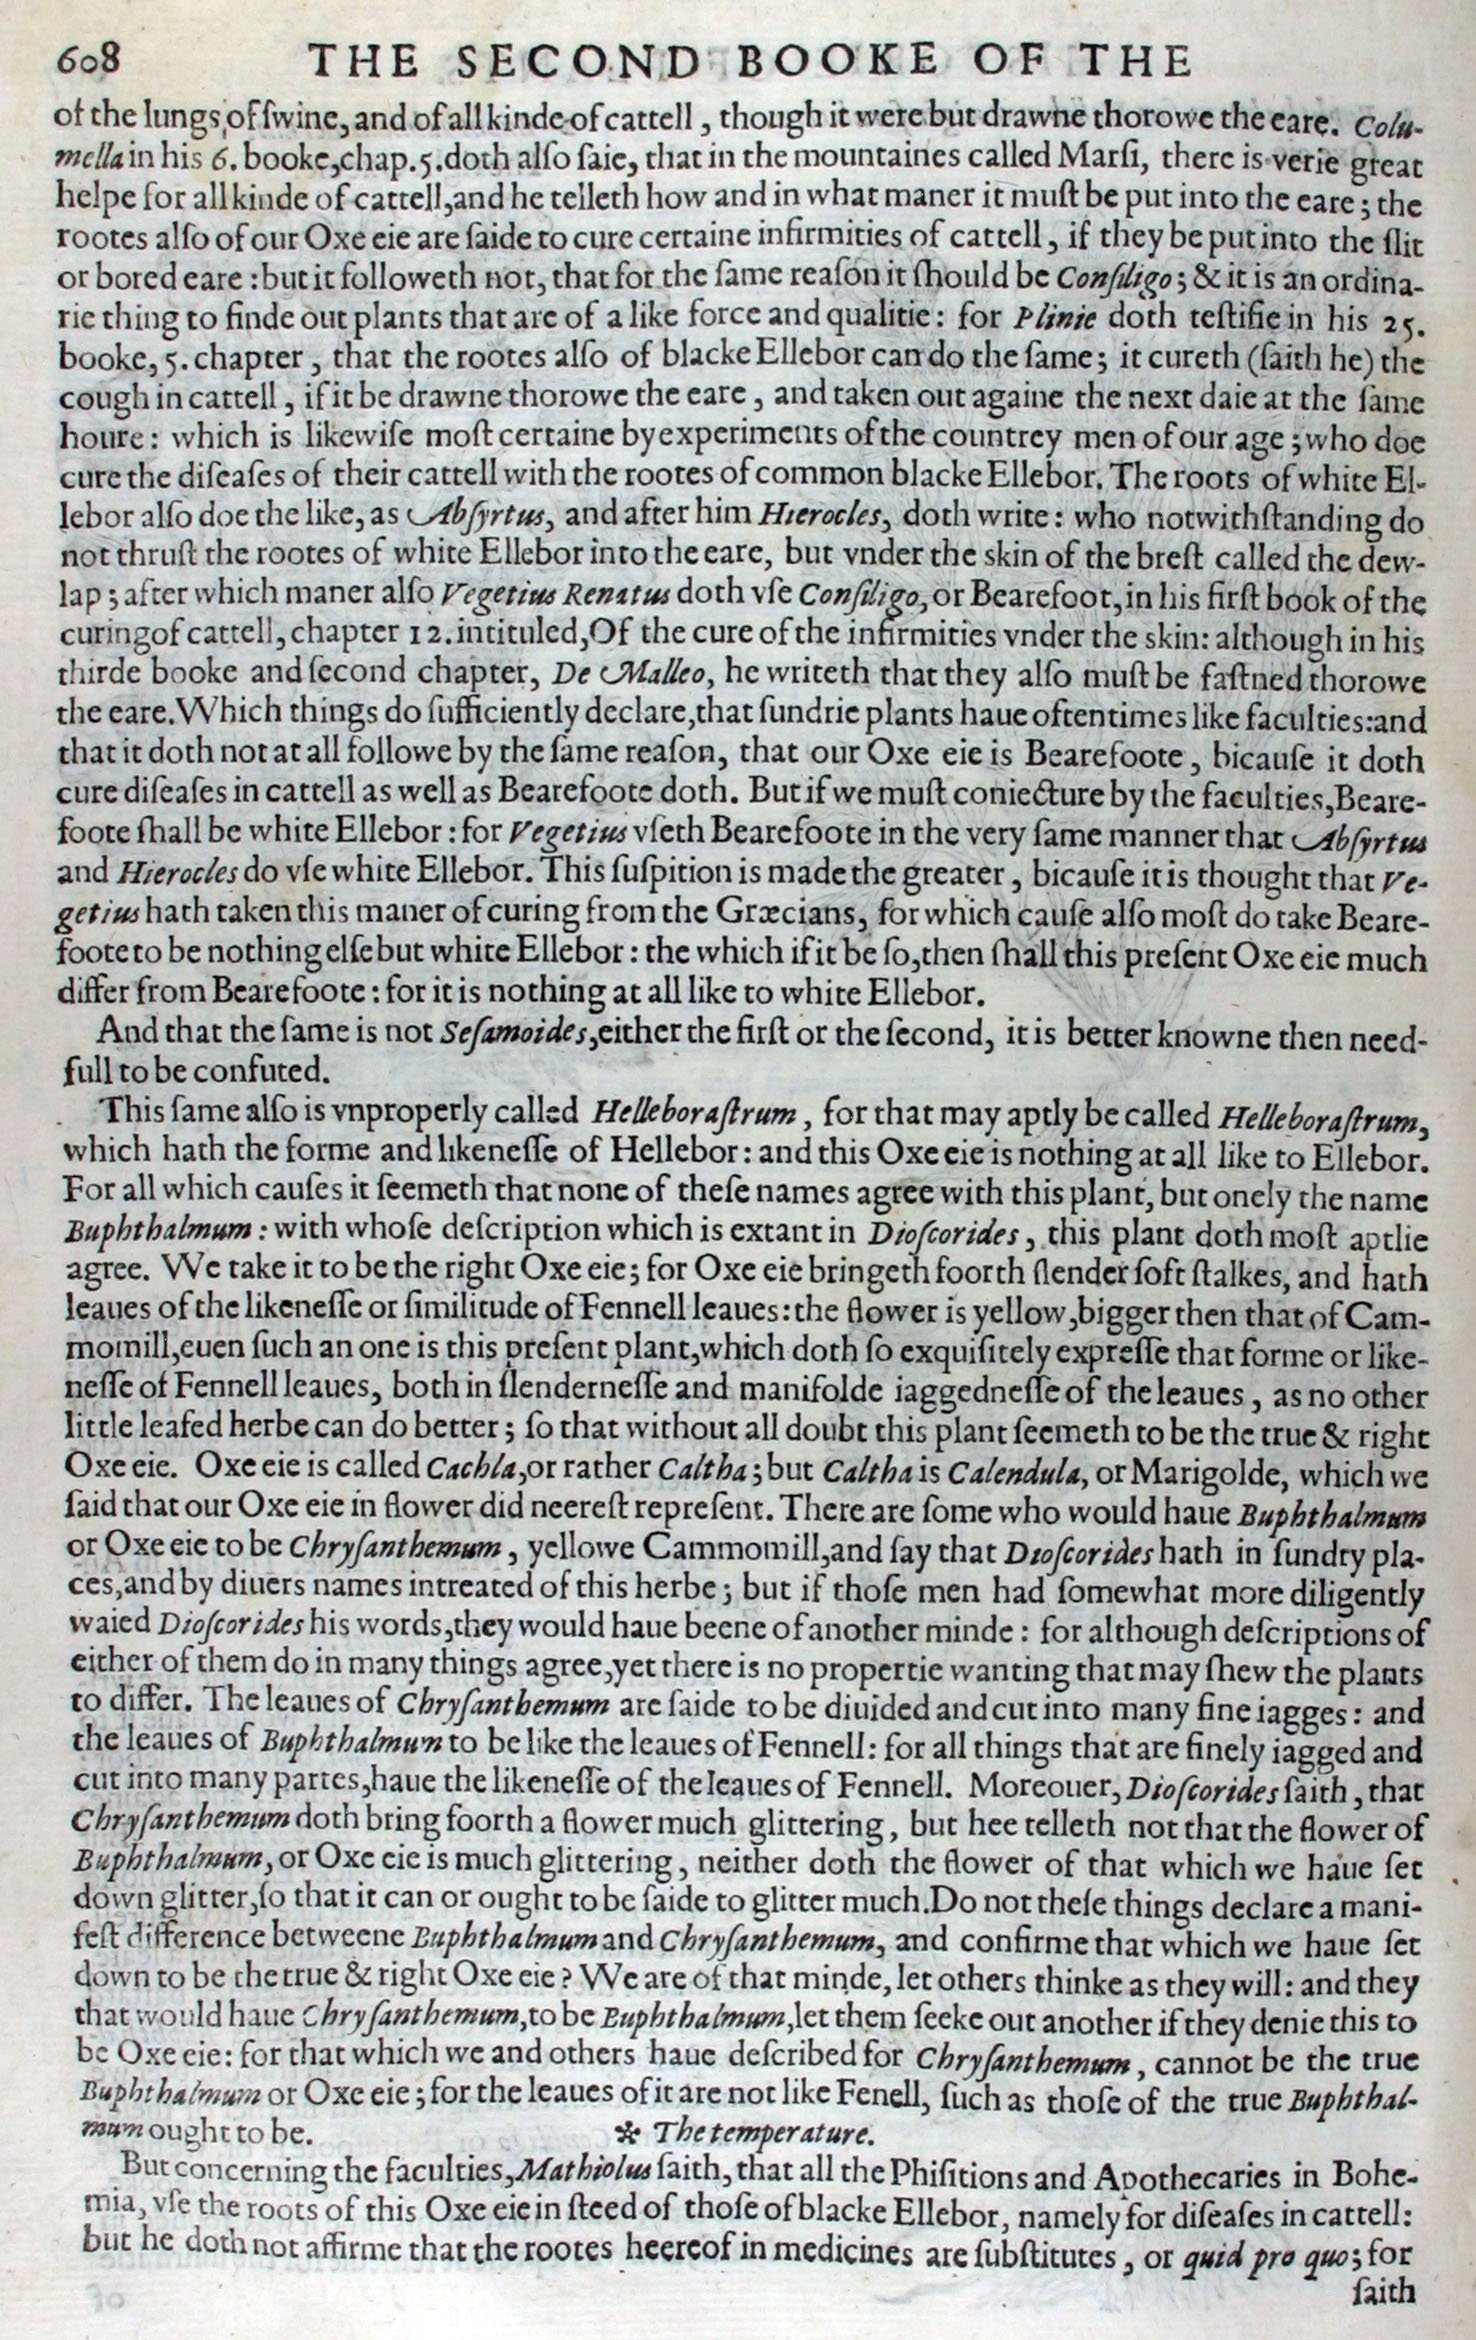 608 THE SECOND BOOKE OF THE
of the lungs of ſwine, and of all kinde of cattell, though it were but drawne thorowe the eare. Colu-
mella in his 6. booke, chap. 5. doth alſo ſaie, that in the mountaines called Marſi, there is verie great
helpe for all kinde of cattell, and he telleth how and in what maner it muſt be put into the eare; the
rootes alſo of our Oxe eie are ſaide to cure certaine infirmities of cattell, if they be put into the ſlit
or bored eare: but it followeth not, that for the ſame reaſon it ſhould be Conſiligo; & it is an ordina-
rie thing to finde out plants that are of a like force and qualitie: for Plinie doth teſtifie in his 25.
booke, 5. chapter, that the rootes alſo of blacke Ellebor can do the ſame; it cureth (ſaith he) the
cough in cattell, if it be drawne thorowe the eare, and taken out againe the next daie at the ſame
houre: which is likewiſe moſt certaine by experiments of the countrey men of our age; who doe
cure the diſeaſes of their cattell with the rootes of common blacke Ellebor. The roots of white El-
lebor alſo doe the like, as Abſyrtus, and after him Hierocles, doth write: who notwithſtanding do
not thruſt the rootes of white Ellebor into the eare, but vnder the skin of the breſt called the dew-
lap; after which maner alſo Vegetius Renatus doth vſe Conſiligo, or Bearefoot, in his firſt book of the
curing of cattell, chapter 12. intituled, Of the cure of the infirmities vnder the skin: although in his
thirde booke and ſecond chapter, De Malleo, he writeth that they alſo muſt be faſtned thorowe
the eare. Which things do ſufficiently declare, that ſundrie plants haue oftentimes like faculties: and
that it doth not at all followe by the ſame reaſon, that our Oxe eie is Bearefoote, bicauſe it doth
cure diſeaſes in cattell as well as Bearefoote doth. But if we muſt coniecture by the faculties, Beare-
foote ſhall be white Ellebor: for Vegetius vſeth Bearefoote in the very ſame manner that Abſyrtus
and Hierocles do vſe white Ellebor. This ſuſpition is made the greater, bicauſe it is thought that Ve-
getius hath taken this maner of curing from the Græcians, for which cauſe alſo moſt do take Beare-
foote to be nothing elſe but white Ellebor: the which if it be ſo, then ſhall this preſent Oxe eie much
differ from Bearefoote: for it is nothing at all like to white Ellebor.
And that the ſame is not Seſamoides, either the firſt or the ſecond, it is better knowne then need-
full to be confuted.
This ſame alſo is vnproperly called Helleboraſtrum, for that may aptly be called Helleboraſtrum,
which hath the forme and likeneſſe of Hellebor: and this Oxe eie is nothing at all like to Ellebor.
For all which cauſes it ſeemeth that none of theſe names agree with this plant, but onely the name
Buphthalmum: with whoſe deſcription which is extant in Dioſcorides, this plant doth moſt aptlie
agree. We take it to be the right Oxe eie; for Oxe eie bringeth foorth ſlender ſoft ſtalkes, and hath
leaues of the likeneſſe or ſimilitude of Fennell leaues: the flower is yellow, bigger then that of Cam-
momill, euen ſuch an one is this preſent plant, which doth ſo exquiſitely expreſſe that forme or like-
neſſe of Fennell leaues, both in ſlenderneſſe and manifolde iaggedneſſe of the leaues, as no other
little leafed herbe can do better; ſo that without all doubt this plant ſeemeth to be the true & right
Oxe eie. Oxe eie is called Cachla, or rather Caltha; but Caltha is Calendula, or Marigolde, which we
ſaid that our Oxe eie in flower did neereſt repreſent. There are ſome who would haue Buphthalmum
or Oxe eie to be Chryſanthemum, yellowe Cammomill, and ſay that Dioſcorides hath in ſundry pla-
ces, and by diuers names intreated of this herbe; but if thoſe men had ſomewhat more diligently
waied Dioſcorides his words, they would haue beene of another minde: for although deſcriptions of
either of them do in many things agree, yet there is no propertie wanting that may ſhew the plants
to differ. The leaues of Chryſanthemum are ſaide to be diuided and cut into many fine iagges: and
the leaues of Buphthalmum to be like the leaues of Fennell: for all things that are finely iagged and
cut into many partes, haue the likeneſſe of the leaues of Fennell. Moreouer, Dioſcorides ſaith, that
Chryſanthemum doth bring foorth a flower much glittering, but hee telleth not that the flower of
Buphthalmum, or Oxe eie is much glittering, neither doth the flower of that which we haue ſet
down glitter, ſo that it can or ought to be ſaide to glitter much. Do not theſe things declare a mani-
feſt difference betweene Buphthalmum and Chryſanthemum, and confirme that which we haue ſet
down to be the true & right Oxe eie? We are of that minde, let others thinke as they will: and they
that would haue Chryſanthemum, to be Buphthalmum, let them ſeeke out another if they denie this to
be Oxe eie: for that which we and others haue deſcribed for Chryſanthemum, cannot be the true
Buphthalmum or Oxe eie; for the leaues of it are not like Fenell, ſuch as thoſe of the true Buphthal-
mum ought to be. ❧ The temperature.
But concerning the faculties, Mathiolus ſaith, that all the Phiſitions and Apothecaries in Bohe-
mia, vſe the roots of this Oxe eie in ſteed of thoſe of blacke Ellebor, namely for diſeaſes in cattell:
but he doth not affirme that the rootes heereof in medicines are ſubſtitutes, or quid pro quo; for
ſaith